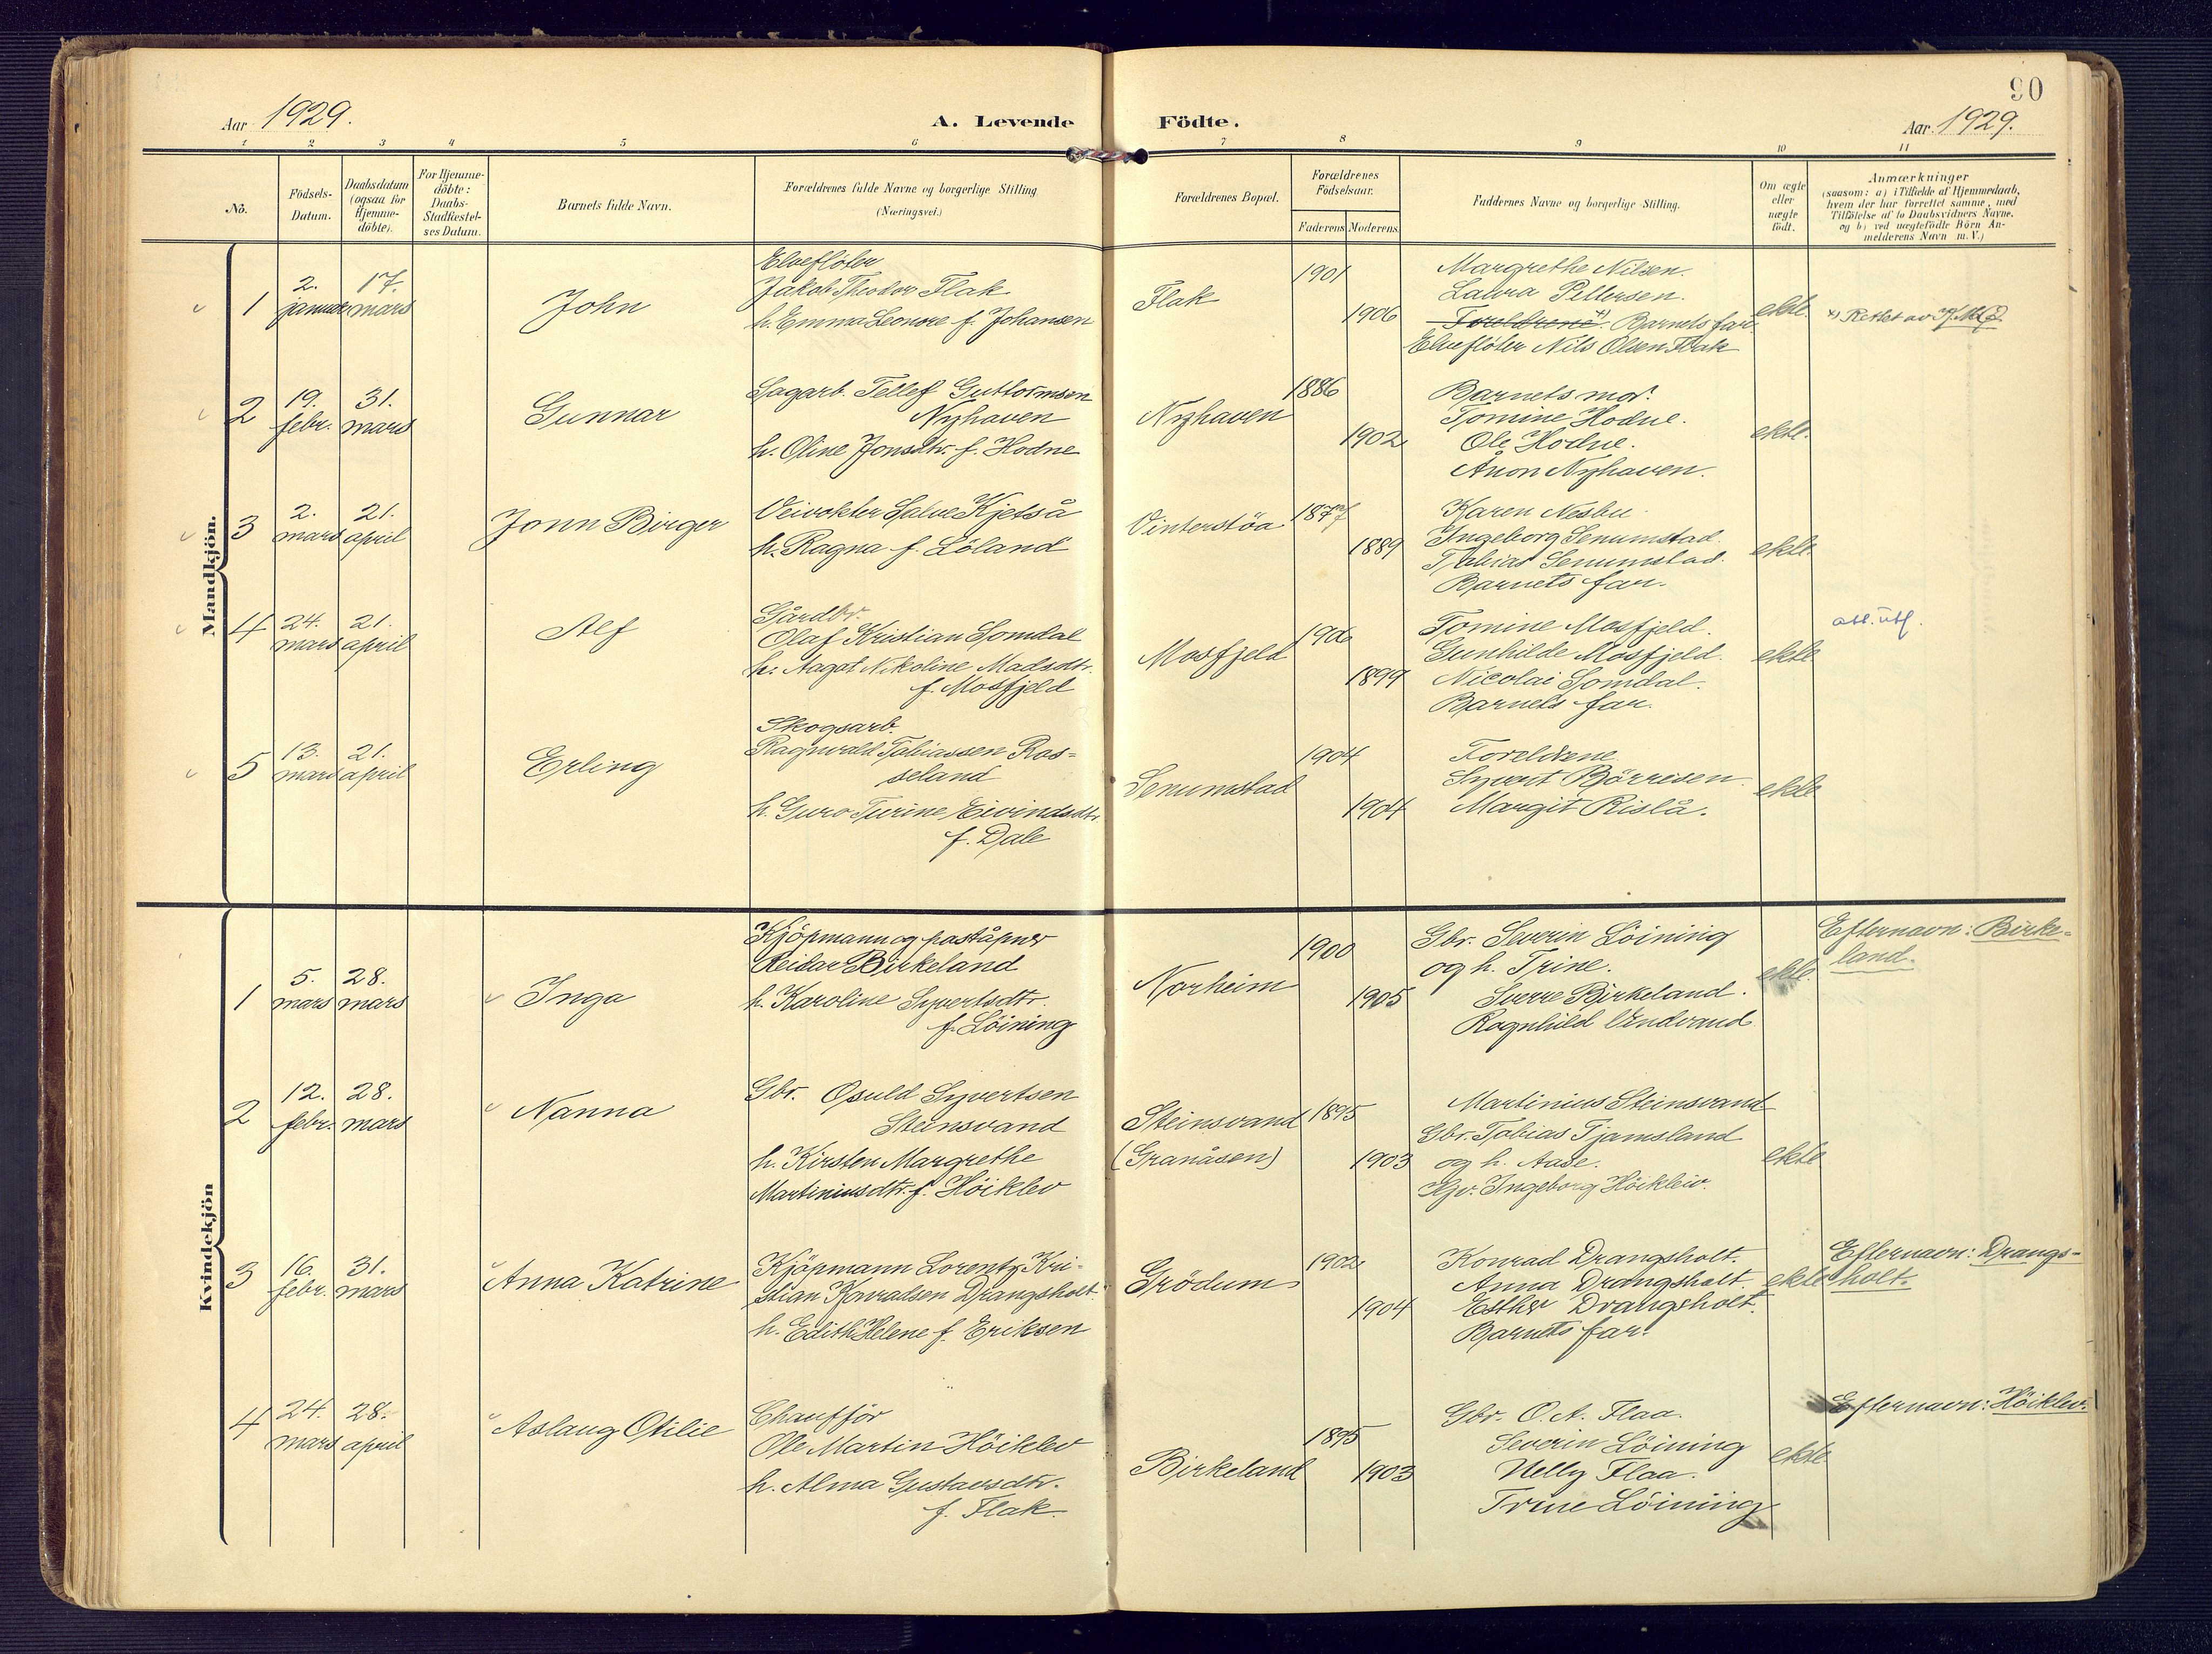 90
Aar 1929.
A. Levende
Födte.
Aar 1929.
1 2 3 4 5 6 7 8 9 10 11
No.
Födsels-
Datum.
Daabsdatum
(ogsaa for
Hjemme-
döbte).
For Hjemme-
döbte:
Daabs-
Stadfæstel-
ses Datum.
Barnets fulde Navn.
Forældrenes fulde Navne og borgerlige Stilling
(Næringsvei.)
Forældrenes Bopæl.
Forældrenes
Födselsaar.
Faderens Moderens
Faddernes Navne og borgerlige Stilling.
Om ægte
eller
uægte
födt.
Anmærkninger
(saasom: a) i Tilfælde af Hjemmedaab,
hvem der har forrettet samme, med
Tilföielse af to Daabsvidners Navne,
og b) ved uægtefödte Börn An-
melderens Navn m. V.)
Mandkjön.
1
2.
januar
17.
mars
John
Elveflöter
Jakob Theodor Flak
h. Emma Leonore f. Johansen
Flak
1901
1906
Margrethe Nilsen.
Laura Pettersen.
Foreldrene x) Barnets far
Elveflöter Nils Olsen Flak
ekte.
x) Rettet av
2
19.
febr.
31.
mars
Gunnar
Sagarb. Tellef Guttormsen
Nyhaven
h. Oline Jonsdtr. f. Hodne
Nyhaven
1886
1902
Barnets mor.
Tomine Hodne.
Ole Hodne.
Anon Nyhaven.
ekte.
3
2.
mars
21.
april
Jonn Birger
Veivokter Salve Kjetså
h. Ragna f. Löland
Vinterstöa
1877
1889
Karen Nesbu
Ingeborg Senumstad.
Tobias Senumstad.
Barnets far.
ekte
4
24.
mars
21.
april
Alf
Gårdbr.
Olaf Kristian Somdal
h. Aagot Nikoline Madsdtr.
f. Mosfjeld
Mosfjeld
1906
1899
Tomine Mosfjeld.
Gunhilde Mosfjeld.
Nicolai Somdal.
Barnets far.
ekte
att. utf.
5
13.
mars
21.
april
Erling
Skogsarb.
Ragnvald Tobiassen Ros-
seland
h. Guro Turine Eivindsdtr.
f. Dale
Senumstad
1904
1904
Foreldrene
Syvert Börresen
Margit Rislå.
ekte
Kvindekjön
1
5.
mars
28.
mars
Inga
Kjöpmann og poståpner
Reidar Birkeland
h. Karoline Syvertsdtr.
f. Löining
Norheim
1900
1905
Gbr. Severin Löining
og h. Trine.
Sverre Birkeland.
Ragnhild Undvand
ekte
Efternavn: Birke-
land.
2
12.
febr.
28.
mars
Nanna
Gbr. Osuld Syvertsen
Steinsvand
h. Kirsten Margrethe
Martiniusdtr. f. Höiklev
Steinsvand
(Granåsen)
1895
1903
Martinius Steinsvand
Gbr. Tobias Tjamsland
og h. Aase.
Ingeborg Höikleiv.
ekte
3
16.
febr.
31.
mars
Anna Katrine
Kjöpmann Lorentz Kri-
stian Konradsen Drangsholt.
h. Edith Helene f. Eriksen
Grödum
1902
1904
Konrad Drangsholt.
Anna Drangsholt.
Esther Drangsholt.
Barnets far.
ekte
Efternavn: Drangs-
holt.
4
24.
mars
28.
april
Aslaug Otilie
Chaufför
Ole Martin Höiklev
h. Alma Gustavsdtr.
f. Flak.
Birkeland
1895
1903
Gbr. O. A. Flaa.
Severin Löining
Nelly Flaa.
Trine Löining
ekte
Efternavn: Höiklev.